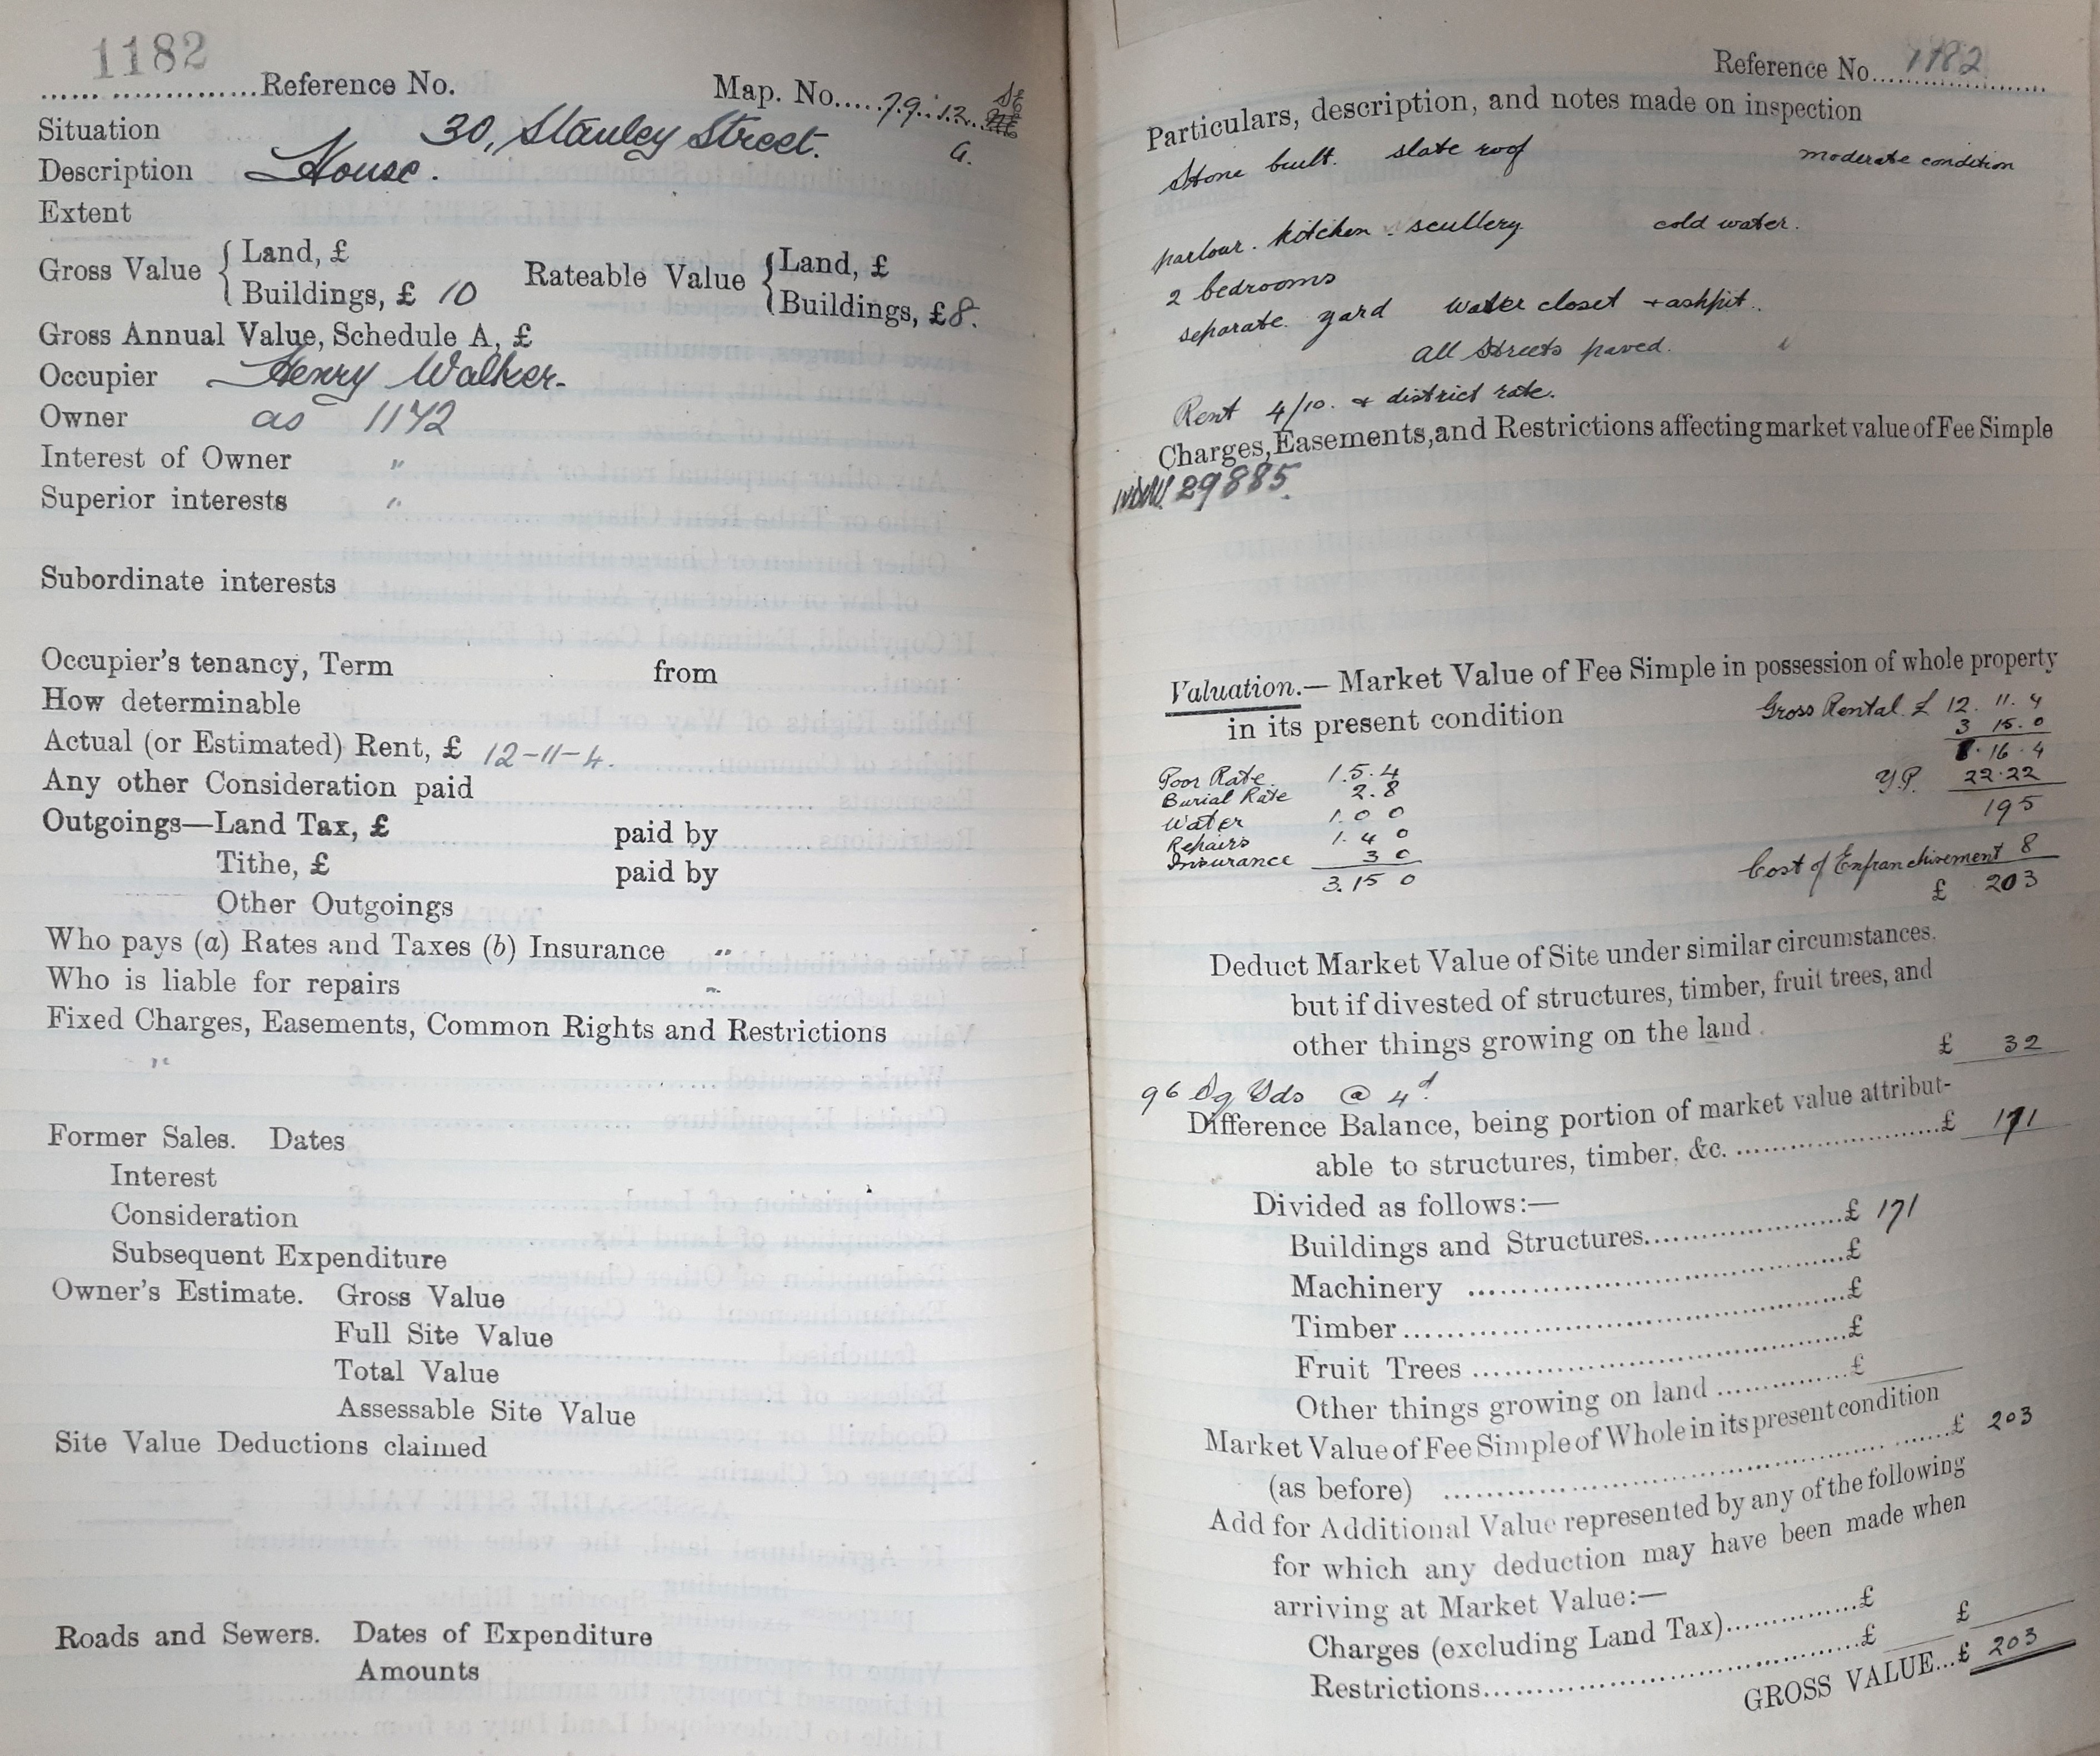 1182
.....................Reference No.
Map. No.....79.12. SE
G.
Situation 30, Stanley Street.
Description House.
Extent
Gross Value { Land, £
Buildings, £ 10
Rateable Value { Land, £
Buildings, £8.
Gross Annual Value, Schedule A, £
Occupier Henry Walker-
Owner as 1142
Interest of Owner "
Superior interests "
Subordinate interests
Occupier's tenancy, Term from
How determinable
Actual (or Estimated) Rent, £ 12-11-4.
Any other Consideration paid
Outgoings—Land Tax, £ paid by
Tithe, £ paid by
Other Outgoings
Who pays (a) Rates and Taxes (b) Insurance "
Who is liable for repairs "
Fixed Charges, Easements, Common Rights and Restrictions
"
Former Sales. Dates
Interest
Consideration
Subsequent Expenditure
Owner's Estimate. Gross Value
Full Site Value
Total Value
Assessable Site Value
Site Value Deductions claimed
Roads and Sewers. Dates of Expenditure
Amounts
Reference No. 1182
Particulars, description, and notes made on inspection
Stone built. slate roof moderate condition
parlour. kitchen - scullery cold water.
2 bedrooms
separate yard water closet + ashpit.
all streets paved.
Rent 4/10. + district rate.
Charges, Easements, and Restrictions affecting market value of Fee Simple
29885.
Valuation.— Market Value of Fee Simple in possession of whole property
in its present condition
Gross Rental £ 12. 11. 4
3 15. 0
8. 16. 4
Y.P. 22.22
195
Cost of Enfranchisement 8
£ 203
Poor Rate. 1. 5. 4
Burial Rate 2. 8
Water 1. 0 0
Repairs 1. 4 0
Insurance 3 0
3. 15 0
Deduct Market Value of Site under similar circumstances,
but if divested of structures, timber, fruit trees, and
other things growing on the land . £ 32
96 Sq Yds @ 4d.
Difference Balance, being portion of market value attribut-
able to structures, timber, &c. ..........................£ 171
Divided as follows:—
Buildings and Structures....................£ 171
Machinery ....................................£
Timber..........................................£
Fruit Trees ...................................£
Other things growing on land ..............£
Market Value of Fee Simple of Whole in its present condition
(as before) .................................................£ 203
Add for Additional Value represented by any of the following
for which any deduction may have been made when
arriving at Market Value:—
Charges (excluding Land Tax)..............£
Restrictions...................................£ £
GROSS VALUE...£ 203